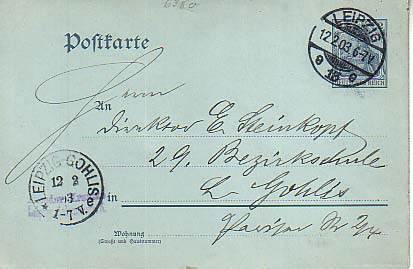 Postkarte
LEIPZIG
12.2.03.6-7V.
REICH
An
Herrn
Direktor E. Steinkopf
29. Bezirkschule
in L. Gohlis
LEIPZIG-GOHLIS
12 2
3
1-7-V.
Wohnung
(Straße und Hausnummer)